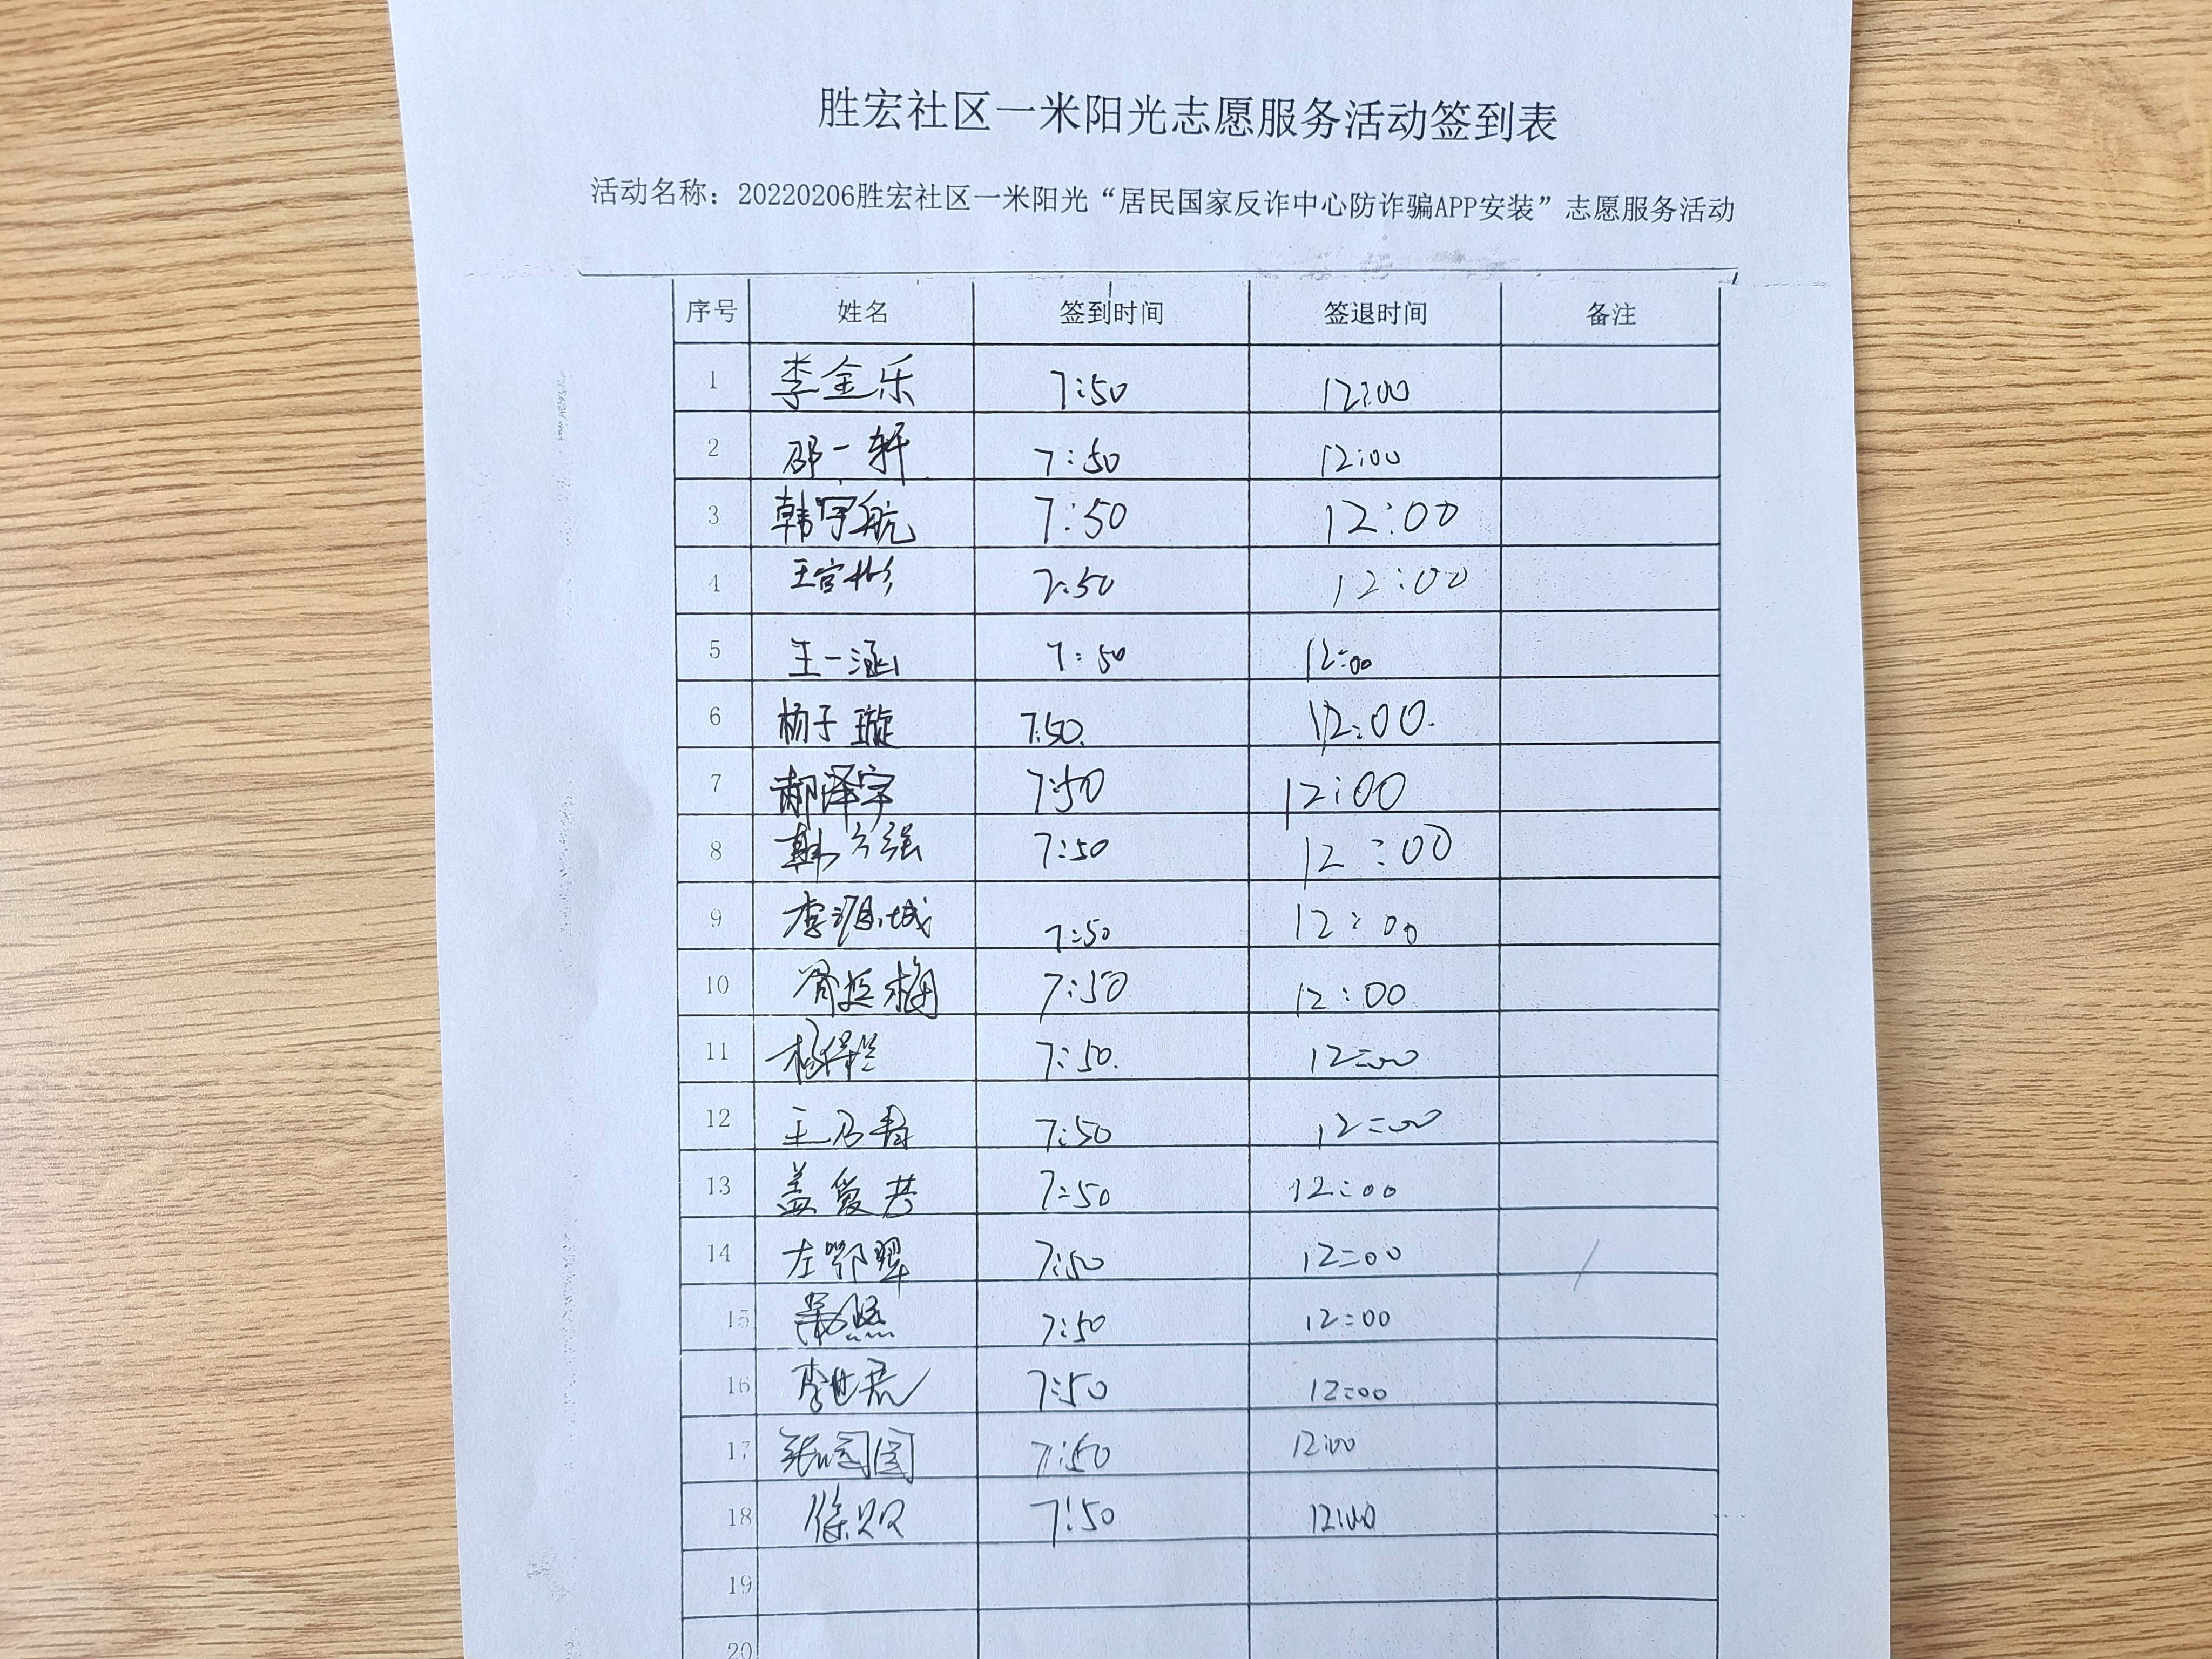 胜宏社区一米阳光志愿服务活动签到表
活动名称：20220206胜宏社区一米阳光“居民国家反诈中心防诈骗APP安装”志愿服务活动
序号 姓名 签到时间 签退时间 备注
1 李金乐 7:50 12:00
2 邵一轩 7:50 12:00
3 韩宇航 7:50 12:00
4 王官彬 7:50 12:00
5 王一涵 7:50 12:00
6 杨子璇 7:50. 12:00.
7 郝泽宇 7:50 12:00
8 韩方强 7:50 12:00
9 李源城 7:50 12:00
10 7:50 12:00
11 7:50. 12:00
12 7:50 12:00
13 盖爱芹 7:50 12:00
14 左鄂翠 7:50 12:00
15 7:50 12:00
16 李世君 7:50 12:00
17 张园园 7:50 12:00
18 徐双 7:50 12:00
19
20